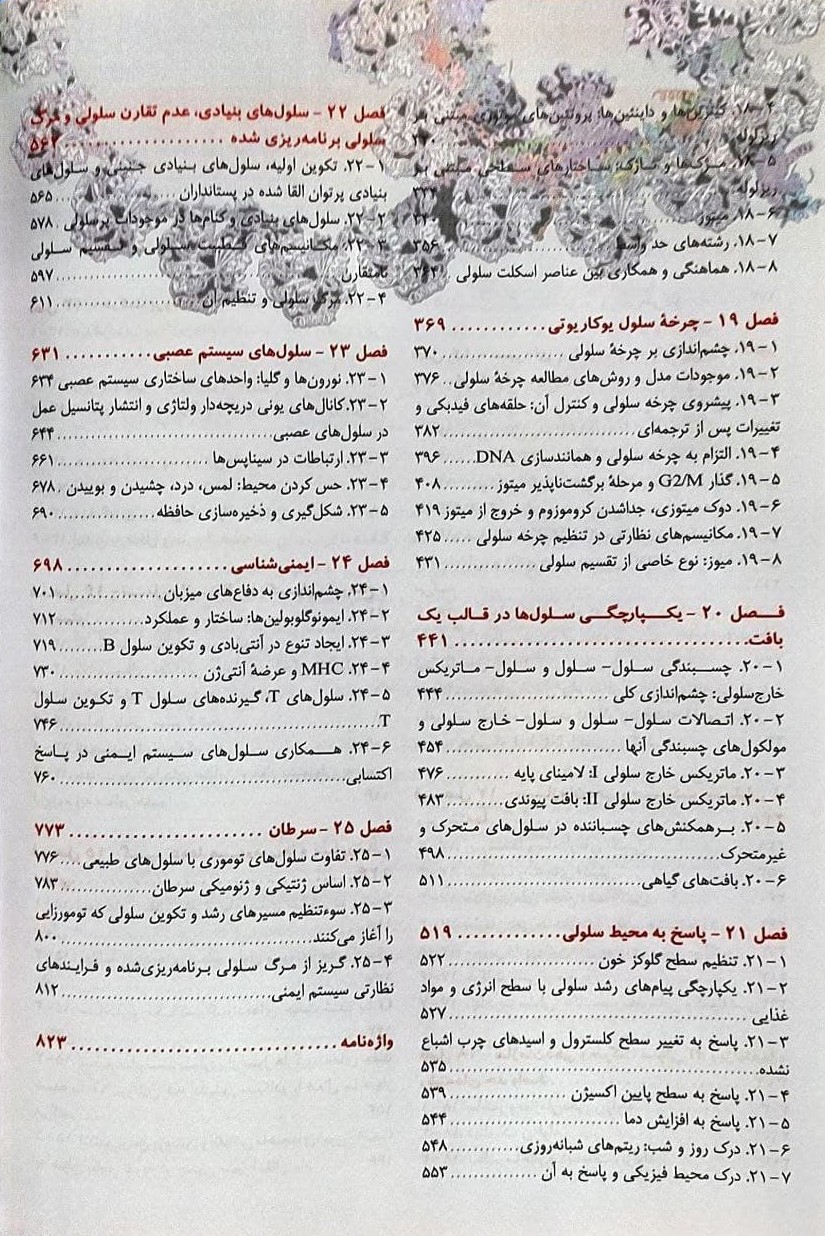 ۴-۱۸. کینزین‌ها و داینئین‌ها: پروتئین‌های موتوری مبتنی بر
ریزلوله
۵-۱۸. مژک‌ها و تاژک: ساختارهای سطحی مبتنی بر
ریزلوله
۶-۱۸. میتوز ................ ۳۴۰
۷-۱۸. رشته‌های حد واسط ................ ۳۵۶
۸-۱۸. هماهنگی و همکاری بین عناصر اسکلت سلولی .. ۳۶۴
فصل ۱۹ - چرخهٔ سلول یوکاریوتی ............ ۳۶۹
۱-۱۹. چشم‌اندازی بر چرخهٔ سلولی .................... ۳۷۰
۲-۱۹. موجودات مدل و روش‌های مطالعه چرخهٔ سلولی .. ۳۷۶
۳-۱۹. پیشروی چرخه سلولی و کنترل آن: حلقه‌های فیدبکی و
تغییرات پس از ترجمه‌ای ................................ ۳۸۲
۴-۱۹. التزام به چرخه سلولی و همانندسازی DNA ...... ۳۹۶
۵-۱۹. گذار G2/M و مرحلهٔ برگشت‌ناپذیر میتوز ......... ۴۰۸
۶-۱۹. دوک میتوزی، جداشدن کروموزوم و خروج از میتوز ۴۱۹
۷-۱۹. مکانیسم‌های نظارتی در تنظیم چرخه سلولی ..... ۴۲۵
۸-۱۹. میوز: نوع خاصی از تقسیم سلولی ............... ۴۳۱
فصل ۲۰ - یکپارچگی سلول‌ها در قالب یک
بافت .................................. ۴۴۱
۱-۲۰. چسبندگی سلول- سلول و سلول- ماتریکس
خارج‌سلولی: چشم‌اندازی کلی ....................... ۴۴۴
۲-۲۰. اتصالات سلول- سلول و سلول- خارج سلولی و
مولکول‌های چسبندگی آنها ......................... ۴۵۴
۳-۲۰. ماتریکس خارج سلولی I: لامینای پایه .......... ۴۷۶
۴-۲۰. ماتریکس خارج سلولی II: بافت پیوندی ......... ۴۸۳
۵-۲۰. برهمکنش‌های چسباننده در سلول‌های متحرک و
غیرمتحرک ...................................... ۴۹۸
۶-۲۰. بافت‌های گیاهی ................................ ۵۱۱
فصل ۲۱ - پاسخ به محیط سلولی ............. ۵۱۹
۱-۲۱. تنظیم سطح گلوکز خون ......................... ۵۲۲
۲-۲۱. یکپارچگی پیام‌های رشد سلولی با سطح انرژی و مواد
غذایی ........................................... ۵۲۷
۳-۲۱. پاسخ به تغییر سطح کلسترول و اسیدهای چرب اشباع
نشده ............................................ ۵۳۵
۴-۲۱. پاسخ به سطح پایین اکسیژن .................... ۵۳۹
۵-۲۱. پاسخ به افزایش دما ............................ ۵۴۴
۶-۲۱. درک روز و شب: ریتم‌های شبانه‌روزی ............ ۵۴۸
۷-۲۱. درک محیط فیزیکی و پاسخ به آن ............... ۵۵۳
فصل ۲۲ - سلول‌های بنیادی، عدم تقارن سلولی و مرگ
سلولی برنامه‌ریزی شده .................... ۵۶۲
۱-۲۲. تکوین اولیه، سلول‌های بنیادی جنینی و سلول‌های
بنیادی پرتوان القا شده در پستانداران ............... ۵۶۵
۲-۲۲. سلول‌های بنیادی و کنام‌ها در موجودات پرسلولی . ۵۷۸
۳-۲۲. مکانیسم‌های قطبیت سلولی و تقسیم سلولی
نامتقارن ........................................ ۵۹۷
۴-۲۲. مرگ سلولی و تنظیم آن ......................... ۶۱۱
فصل ۲۳ - سلول‌های سیستم عصبی ............. ۶۳۱
۱-۲۳. نورون‌ها و گلیا: واحدهای ساختاری سیستم عصبی ۶۳۴
۲-۲۳. کانال‌های یونی دریچه‌دار ولتاژی و انتشار پتانسیل عمل
در سلول‌های عصبی ................................ ۶۴۴
۳-۲۳. ارتباطات در سیناپس‌ها .......................... ۶۶۱
۴-۲۳. حس کردن محیط: لمس، درد، چشیدن و بوییدن . ۶۷۸
۵-۲۳. شکل‌گیری و ذخیره‌سازی حافظه ................. ۶۹۰
فصل ۲۴ - ایمنی‌شناسی .................... ۶۹۸
۱-۲۴. چشم‌اندازی به دفاع‌های میزبان ................. ۷۰۱
۲-۲۴. ایمونوگلوبولین‌ها: ساختار و عملکرد ............ ۷۱۲
۳-۲۴. ایجاد تنوع در آنتی‌بادی و تکوین سلول B ........ ۷۱۹
۴-۲۴. MHC و عرضهٔ آنتی‌ژن ........................ ۷۳۰
۵-۲۴. سلول‌های T، گیرنده‌های سلول T و تکوین سلول
T .............................................. ۷۴۶
۶-۲۴. همکاری سلول‌های سیستم ایمنی در پاسخ
اکتسابی ........................................ ۷۶۰
فصل ۲۵ - سرطان ........................ ۷۷۳
۱-۲۵. تفاوت سلول‌های توموری با سلول‌های طبیعی .... ۷۷۶
۲-۲۵. اساس ژنتیکی و ژنومیکی سرطان ................ ۷۸۳
۳-۲۵. سوءتنظیم مسیرهای رشد و تکوین سلولی که تومورزایی
را آغاز می‌کنند .................................. ۸۰۰
۴-۲۵. گریز از مرگ سلولی برنامه‌ریزی‌شده و فرایندهای
نظارتی سیستم ایمنی .............................. ۸۱۲
واژه‌نامه ................................ ۸۲۳